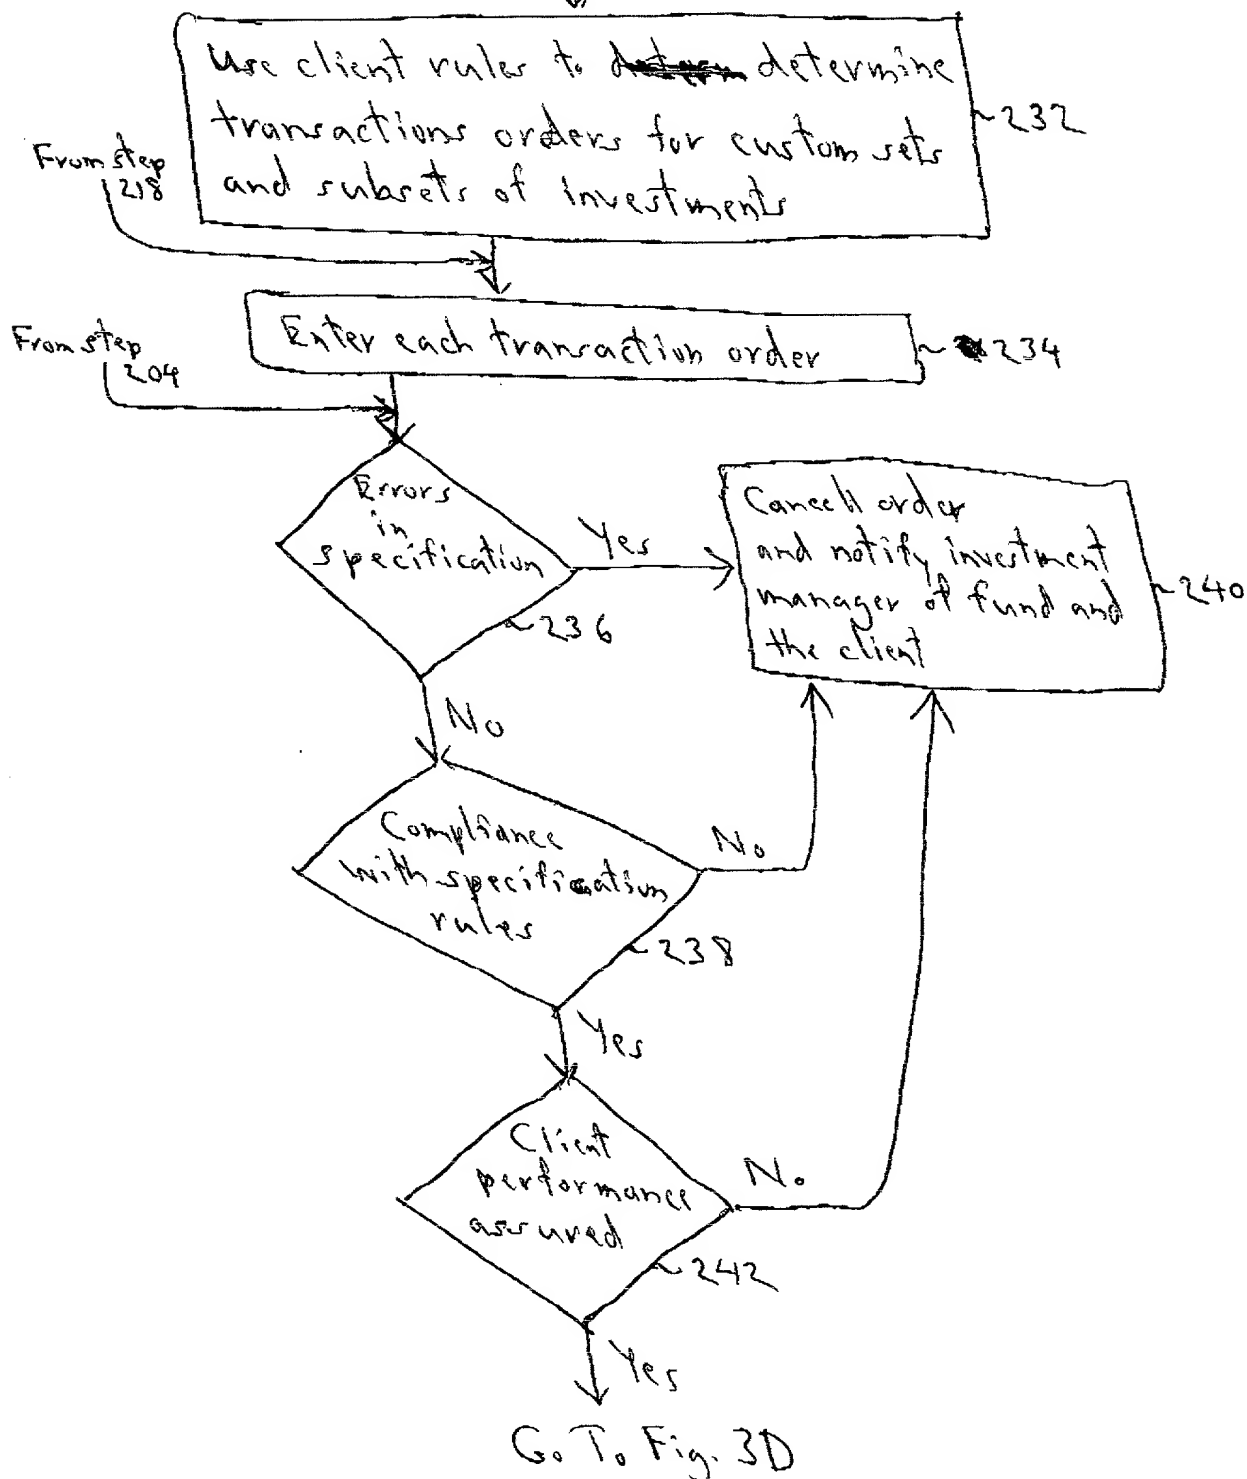 Use client rules to determine
transactions orders for custom sets
and subsets of investments
~232
From step
218
Enter each transaction order
~234
From step
204
Errors
in
specification
~236
Yes
Cancell order
and notify investment
manager of fund and
the client
~240
No
Compliance
with specification
rules
~238
No
Yes
Client
performance
assured
~242
No
Yes
Go To Fig. 3D